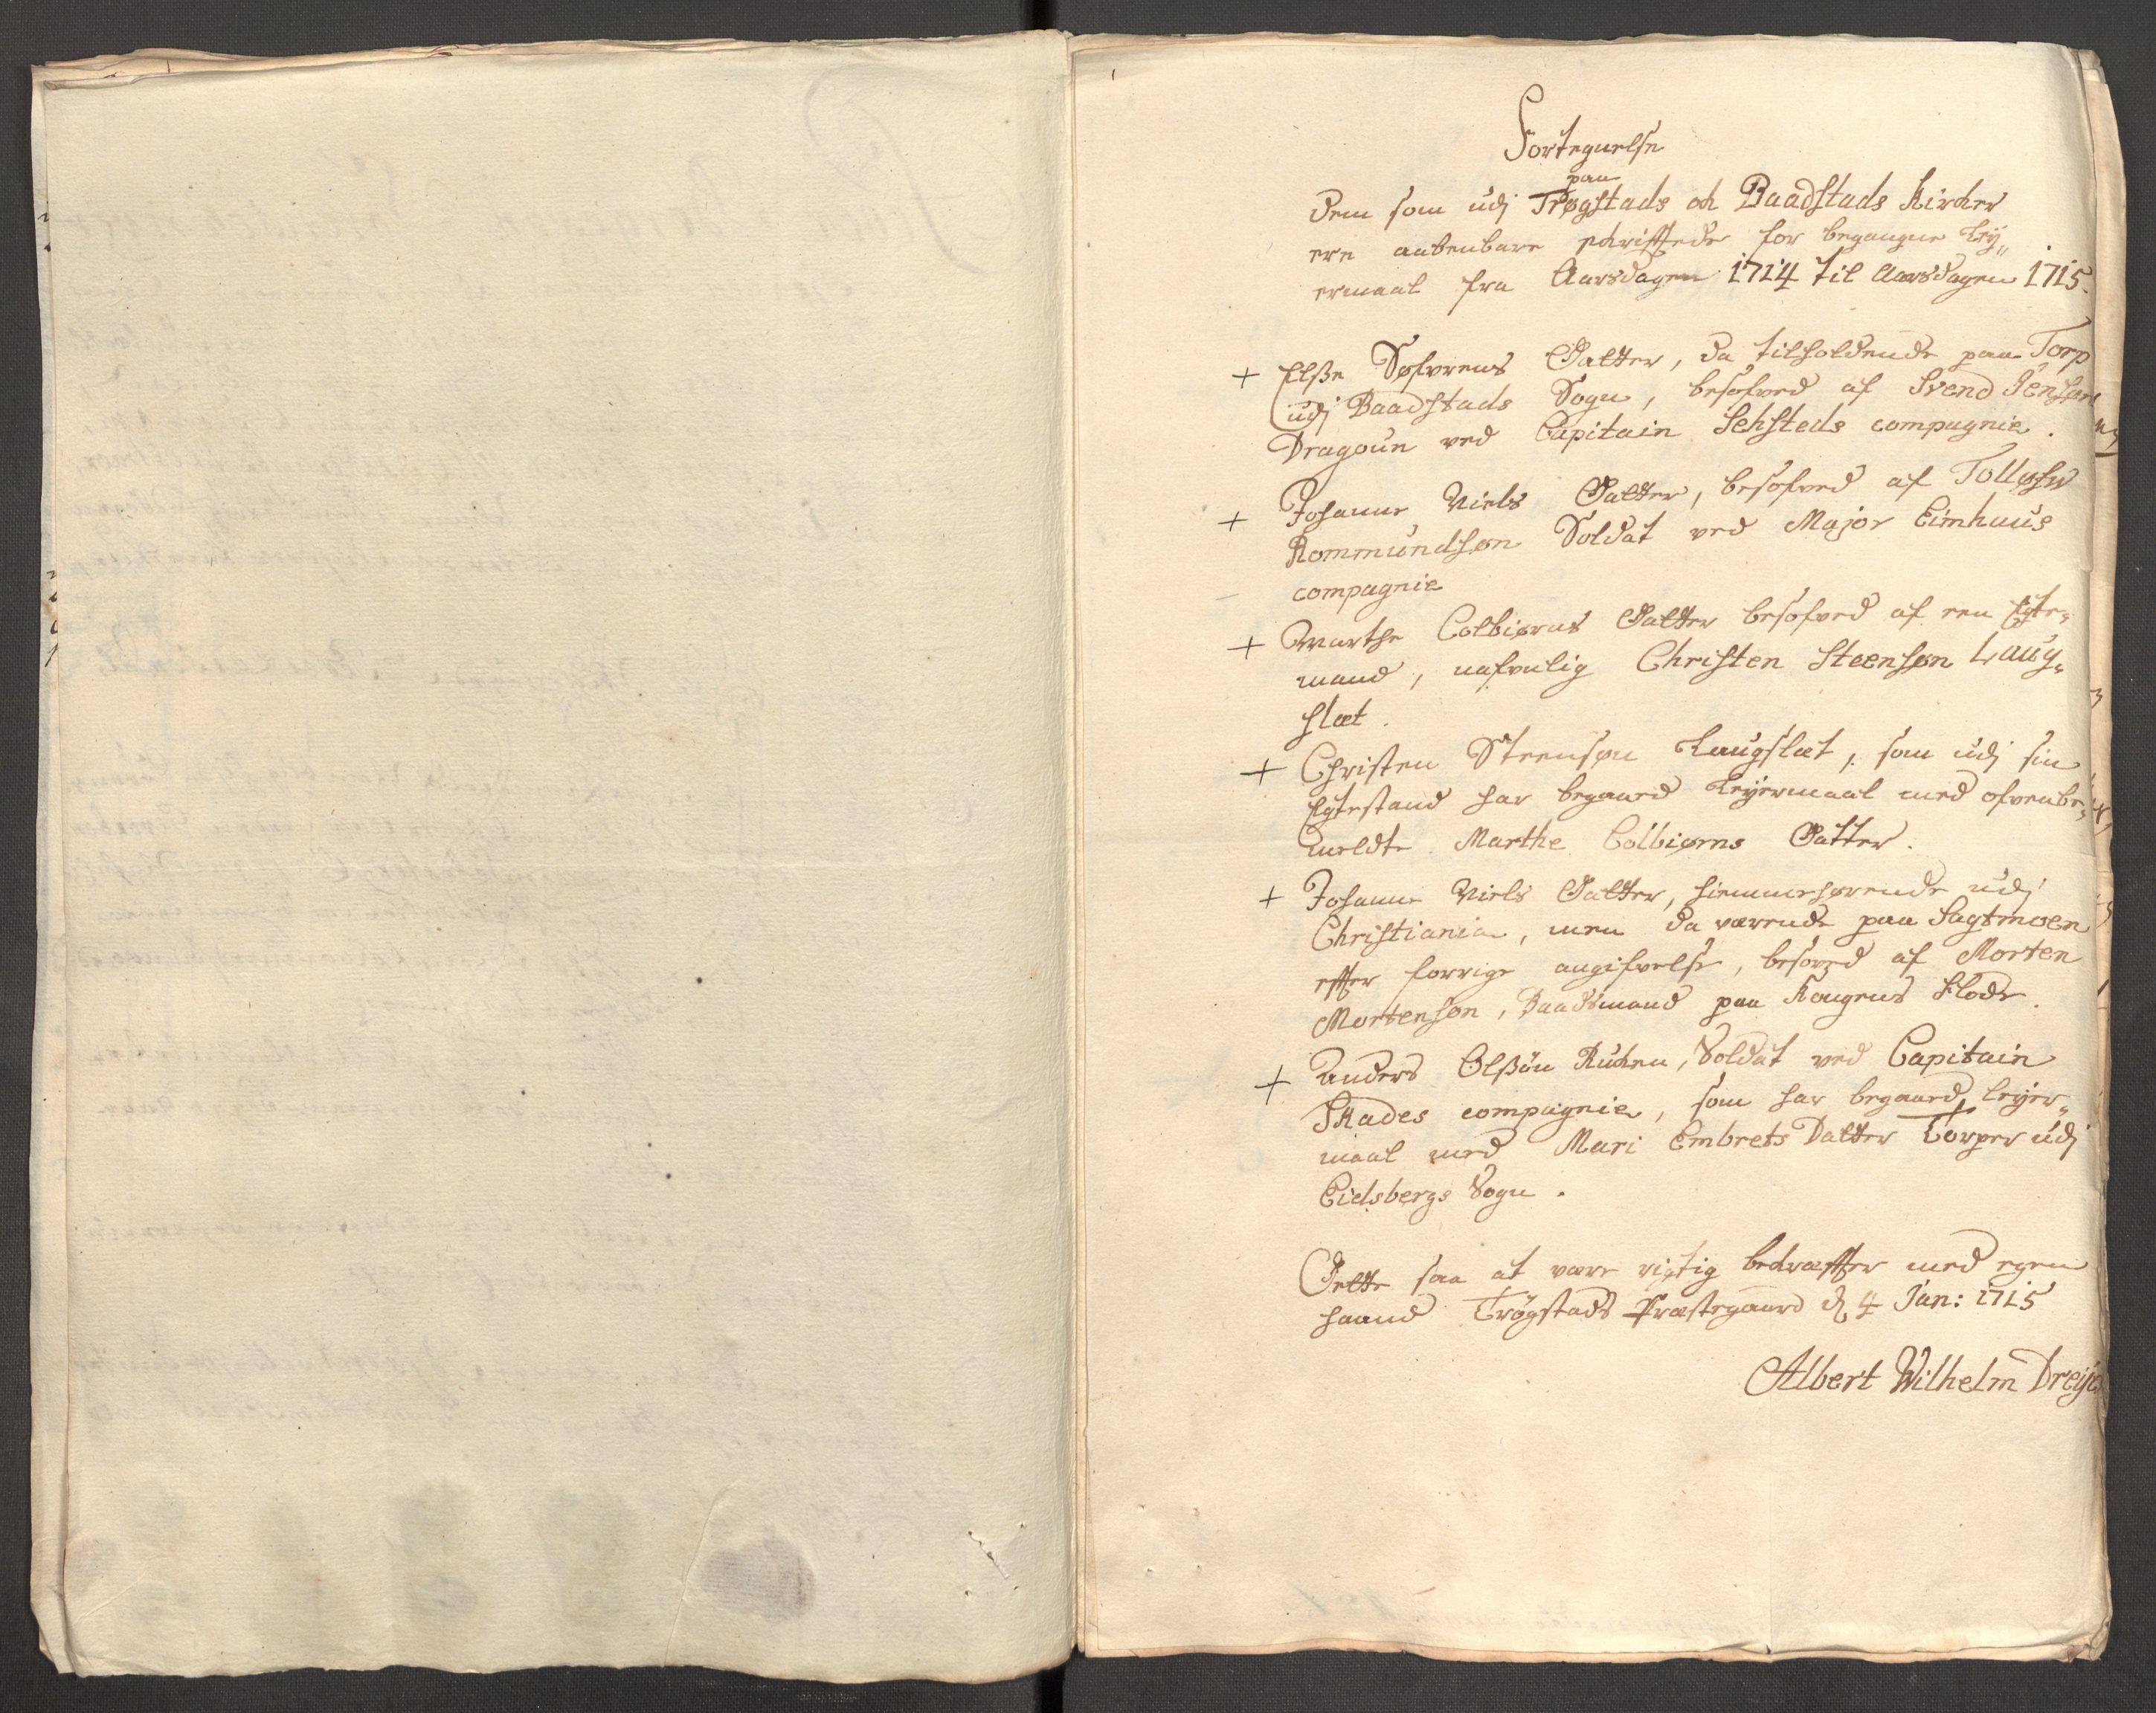 Fortegnelse
paa
dem som udj Trøgstads och Baadstads Kircher
ere aabenbare schrifftede for begangne Ley„
ermaal fra Aarsdagen 1714 til Aarsdagen 1715.
+ Elsse Søfvrens Datter, da tilholdende paa Torp
udj Baadstads Sogn, besofved af Svend Jensøn
Dragoun ved Capitain Sehsteds compagnie.
+ Johanne Niels Datter, besofved af Tolløfs
Rommundsøn Soldat ved Major Eimhaus
compagnie
+ Marthe Colbiørns Datter besofved af een Egte„
mand, nafvnlig Christen Steensøn Laug„
slæt.
+ Christen Steensøn Laugslæt, som udj sin
Egtestand har begaaed Leyermaal med ofvenbe„
meldte Marthe Colbiørns Datter.
+ Johanne Niels Datter, hiemmehørende udj
Christiania, men da værende paa Sagtmoen
effter forrige angifvelse, besoved af Morten
Mortensøn, Baadsmand paa Kongens Flode.
+ Anders Olssøn Ruchen, Soldat ved Capitain
Skades compagnie, som har begaaed Leyer„
maal med Mari Embrets Datter Torper udj
Eidsbergs Sogn.
Dette saa at være rigtig bekræffter med egen
haand Trögstads Præstegaard d. 4 Jan: 1715
Albert Wilhelm Dreÿer